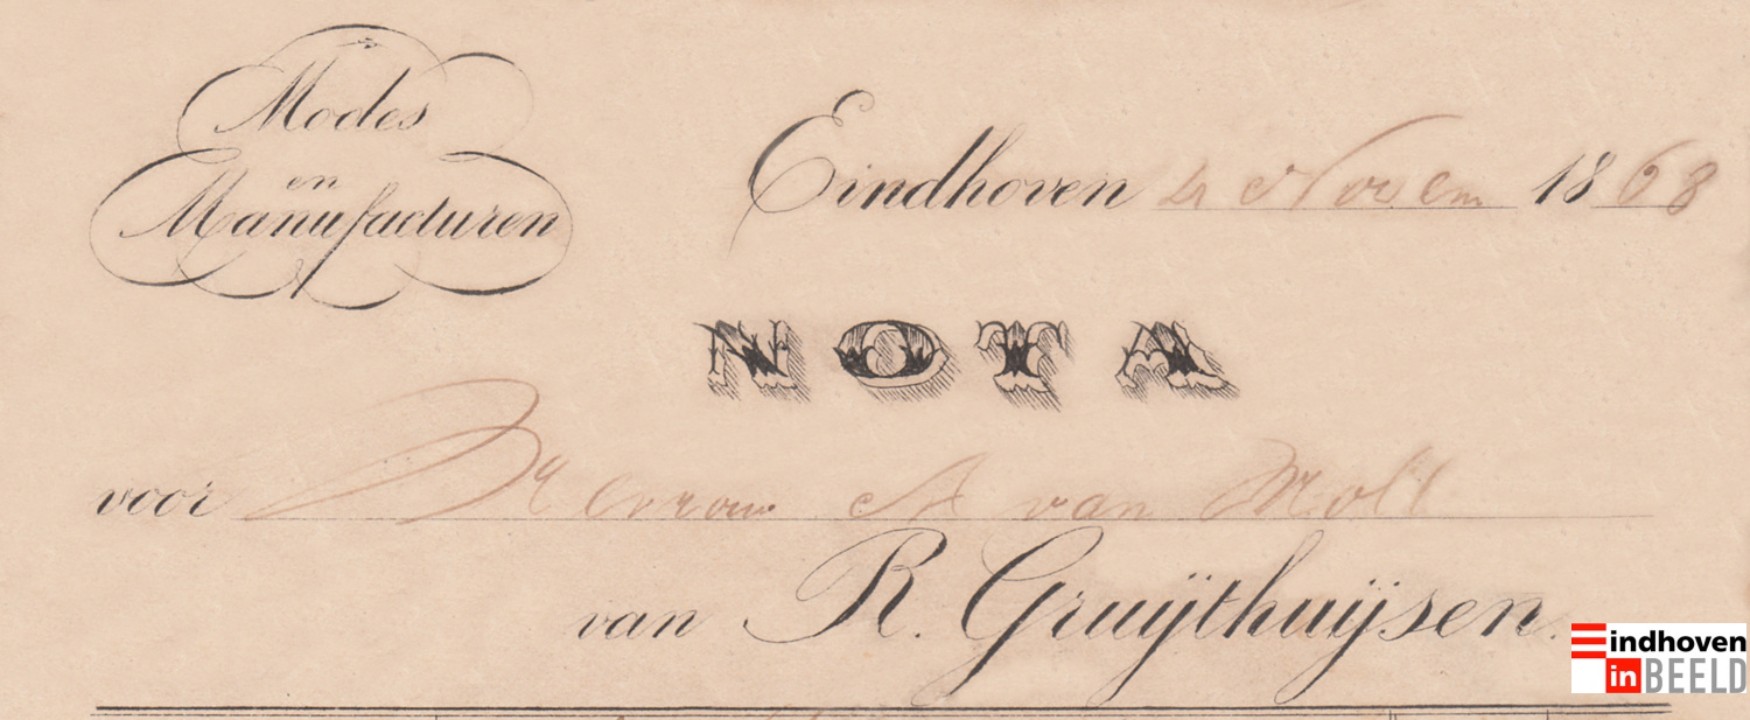 Modes
en
Manufacturen
Eindhoven 4 Novem 1868
NOTA
voor Mevrouw A van Moll
van R. Gruÿthuÿsen.
Eindhoven
in BEELD